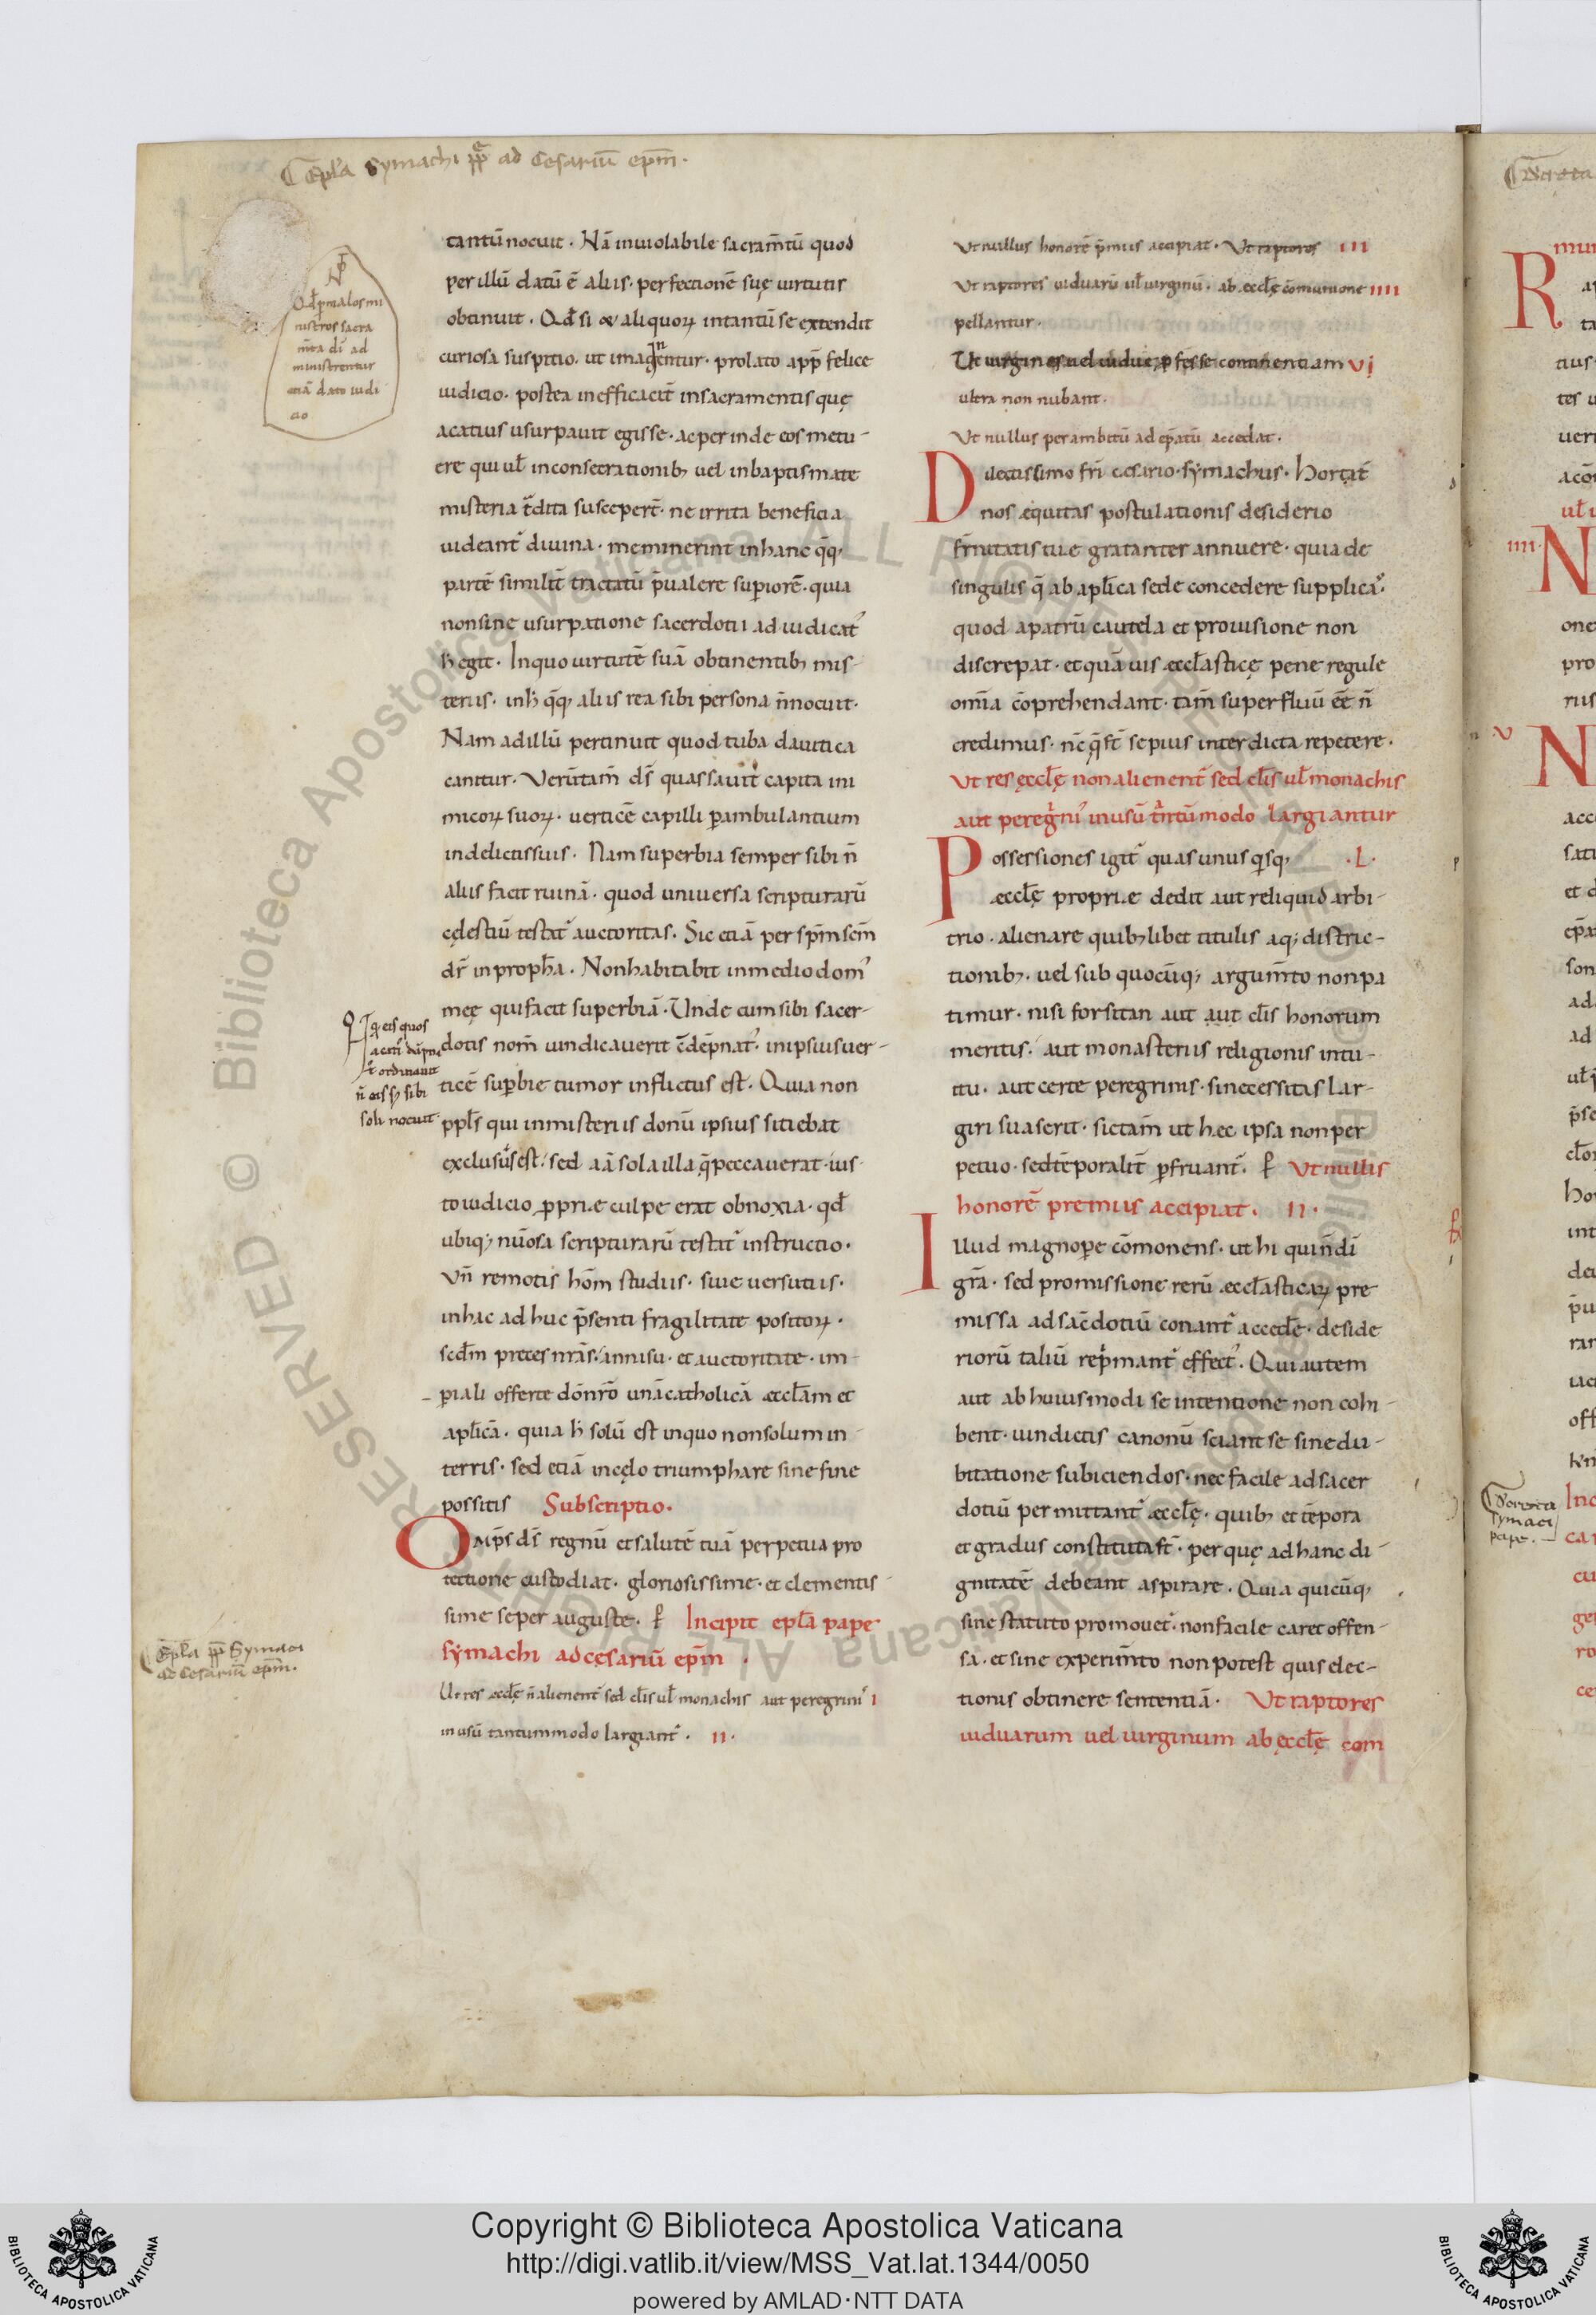 Epła Symachi pp̄ ad Cesariū ep̄m.
tantū nocuit. Nā inuiolabile sacram̄tū quod
per illū datū ē aliis. perfectionē suę uirtutis
obtinuit. Qd̄ si & aliquoꝝ intantū se extendit
curiosa suspitio. ut imaginentur. prolato a pp̄ felice
iudicio. postea inefficacit̄ insacramentis quę
acatius usurpauit egisse. ac perinde eos metu-
ere qui ul̄ inconsecrationib; uel inbaptismate
misteria t̄dita suscepert̄. ne irrita beneficia
uideant̄ diuina. meminerint inhanc q̄q;
partē similit̄ tractatū p̄ualere sup̄iorē. quia
nonsine usurpatione sacerdotii adiudicat̄
h̄ egit. Inquo uirtutē suā obtinentib; mis-
teriis. inh̄ q̄q; aliis rea sibi persona n̄nocuit.
Nam adillū pertinuit quod tuba dauitica
canitur. Verūtam̄ ds̄ quassauit capita ini
micoꝝ suoꝝ. uerticē capilli p̄ambulantium
indelictissuis. Nam superbia semper sibi n̄
aliis facit ruinā. quod uniuersa scripturarū
cęlestiū testat̄ auctoritas. Sic etiā per sp̄m sc̄m
dr̄ in propħa. Nonhabitabit inmedio dom̄
meę qui facit superbiā. Unde cum sibi sacer-
dotis nom̄ uindicauerit c̄dēpnat̄. inipsius uer-
ticē sup̄bie tumor inflictus est. Quia non
ppl̄s qui inmisteriis donū ipsius sitiebat
exclusus est. sed aīa sola illa q̄ peccauerat. ius-
to iudicio ꝓprię culpe erat obnoxia. qd̄
ubiq; nūosa scripturarū testat̄ instructio.
Vn̄ remotis hōm studiis. siue uersutiis.
inhac adhuc p̄senti fragilitate positoꝝ.
scd̄m preces nrās. annisu. et auctoritate. im-
p̄iali offerte dō nr̄o unā catholicā ęccłam et
apłicā. quia h̄ solū est inquo nonsolum in
terris. sed etiā incęlo triumphare sine fine
possitis Subscriptio.
Omp̄s ds̄ regnū et salutē tuā perpetua pro
tectione custodiat. gloriosissime. et clementis
sime sēper auguste. Incipit epła pape
symachi ad cęsariū ep̄m.
Ut res æccłę n̄ alienent̄ sed cłis ul̄ monachis aut peregrini I
in usū tantummodo largiant̄. II.
Od̄ p̄ malos mi
nistros sacra
m̄ta dī ad
ministrentur
etiā dato iudi
cio
q̄ eis quos
ordinauit
n̄ eis s; sibi
soli nocuit.
Epła pp̄ Symaci
ad Cesariū ep̄m.
Ut nullus honorē p̄mius accipiat. Ut raptores III
Ut raptores uiduarū ul̄ uirginū. ab æccłę cōmunione IIII
pellantur.
Ut uirgines uel uiduę ꝓfesse continentiam VI
ultra non nubant.
Ut nullus per ambitū ad ep̄atū accedat.
Dilectissimo fr̄i cesario. symachus. Hortat̄
nos æquitas postulationis desiderio
fr̄nitatis tue gratanter annuere. quia de
singulis q̄ ab apłica sede concedere supplicas.
quod a patrū cautela et prouisione non
discrepat. et quāuis æccłasticę pene regule
omīa cōprehendant. tam̄ superfluū eē n̄
credimus. nc̄ q̄ st̄ sepius interdicta repetere.
Ut res ęccłę non alienent̄ sed cłis ul̄ monachis
aut peregrini inusū t̄ntūmodo largiantur
Possessiones igit̄ quas unus q̄sq; .I.
æccłę proprię dedit aut reliquid arbi-
trio. alienare quib;libet titulis atq; distric-
tionib;. uel sub quocūq; argum̄to non pa
timur. nisi forsitan aut aut cłis honorum
meritis. aut monasteriis religionis intu-
itu. aut certe peregrinis. si necessitas lar-
giri suaserit. sic tam̄ ut hæc ipsa non per
petuo. sed tēporalit̄ p̄fruant̄. Ut nullus
honorē premius accipiat. II.
Illud magnop̄e cōmonens. ut hi qui n̄ di
gr̄a. sed promissione rerū æccłasticaꝝ pre
missa ad sac̄dotiū conant̄ accede. deside
riorū taliū rep̄mant̄ effect̄. Qui autem
aut ab huiusmodi se intentione non cohi-
bent. uindictis canonū sciant se sine du-
bitatione subiciendos. nec facile ad sacer
dotiū permittant̄ æccłę. quib; et tēpora
et gradus constituta st̄. per quę ad hanc di-
gnitatē debeant aspirare. Quia quicūq;
sine statuto promouet̄. non facile caret offen-
sā. et sine experim̄to non potest quis elec-
tionis obtinere sententiā. Ut raptores
uiduarum uel uirginum ab ęccłę com
Decreta
symaci
pape.
Copyright © Biblioteca Apostolica Vaticana
http://digi.vatlib.it/view/MSS_Vat.lat.1344/0050
powered by AMLAD·NTT DATA
BIBLIOTECA APOSTOLICA VATICANA
BIBLIOTECA APOSTOLICA VATICANA